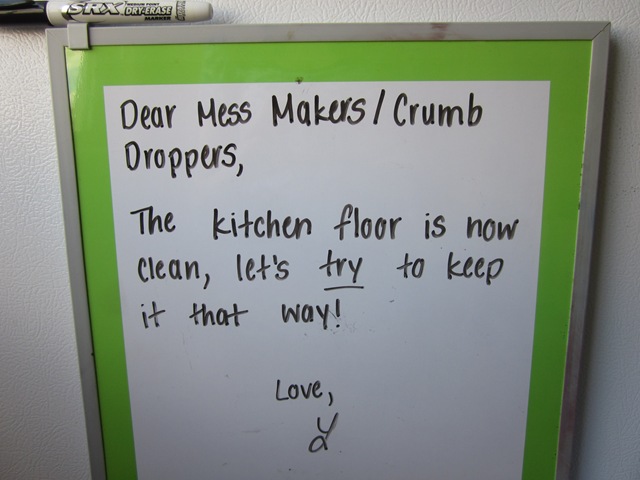 SRX MEDIUM POINT
DRY-ERASE
MARKER
Dear Mess Makers/Crumb
Droppers,
The kitchen floor is now
clean, let's try to keep
it that way!
Love,